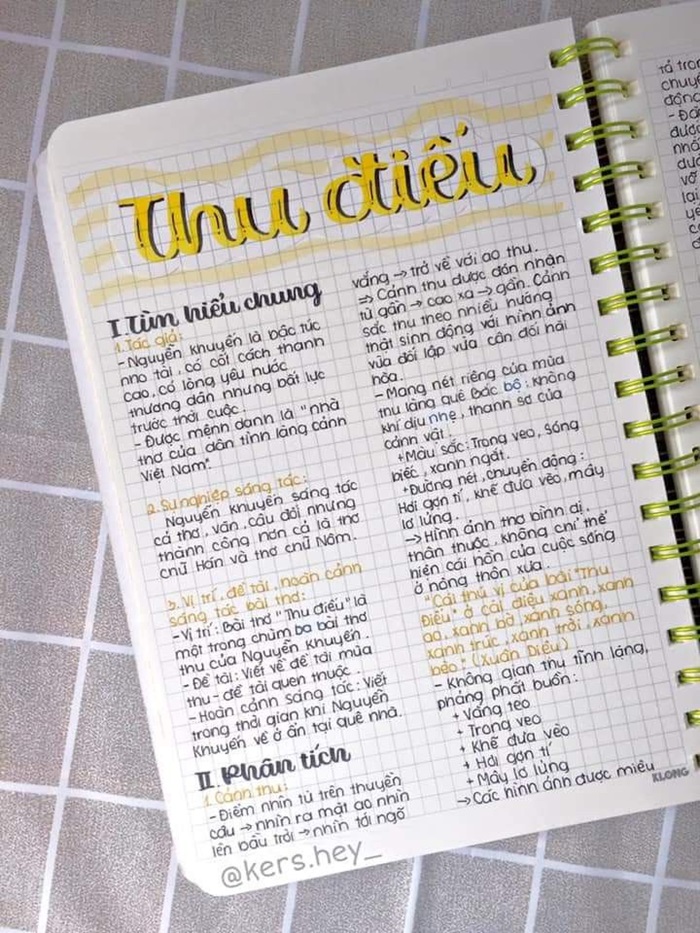 Thu điếu
I Tìm hiểu chung
1. Tác giả:
- Nguyễn Khuyến là bậc túc
nho tài, có cốt cách thanh
cao, có lòng yêu nước
thương dân nhưng bất lực
trước thời cuộc.
- Được mệnh danh là "nhà
thơ của dân tình làng cảnh
Việt Nam".
2. Sự nghiệp sáng tác:
Nguyễn Khuyến sáng tác
cả thơ, văn, câu đối nhưng
thành công hơn cả là thơ
chữ Hán và thơ chữ Nôm.
3. Vị trí, đề tài, hoàn cảnh
sáng tác bài thơ:
- Vị trí: Bài thơ "Thu điếu" là
một trong chùm ba bài thơ
thu của Nguyễn Khuyến.
- Đề tài: Viết về đề tài mùa
thu - đề tài quen thuộc.
- Hoàn cảnh sáng tác: Viết
trong thời gian khi Nguyễn
Khuyến về ở ẩn tại quê nhà.
II Phân tích
1. Cảnh thu:
- Điểm nhìn từ trên thuyền
câu → nhìn ra mặt ao nhìn
lên bầu trời → nhìn tới ngõ
@kers.hey_
vắng → trở về với ao thu.
⇒ Cảnh thu được đón nhận
từ gần → cao xa → gần. Cảnh
sắc thu theo nhiều hướng
thật sinh động với hình ảnh
vừa đối lập vừa cân đối hài
hòa.
- Mang nét riêng của mùa
thu làng quê Bắc bộ: không
khí dịu nhẹ, thanh sơ của
cảnh vật.
+ Màu sắc: Trong veo, sóng
biếc, xanh ngắt.
+ Đường nét, chuyển động:
Hơi gợn tí, khẽ đưa vèo, mây
lơ lửng.
→ Hình ảnh thơ bình dị,
thân thuộc, không chỉ thể
hiện cái hồn của cuộc sống
ở nông thôn xưa.
"Cái thú vị của bài "Thu
Điếu" ở cái điệu xanh, xanh
ao, xanh bờ, xanh sóng,
xanh trúc, xanh trời, xanh
bèo." (Xuân Diệu)
- Không gian thu tĩnh lặng,
phảng phất buồn:
+ Vắng teo
+ Trong veo
+ Khẽ đưa vèo
+ Hơi gợn tí
+ Mây lơ lửng
→ Các hình ảnh được miêu
KLONG
tả tron
chuyể
động